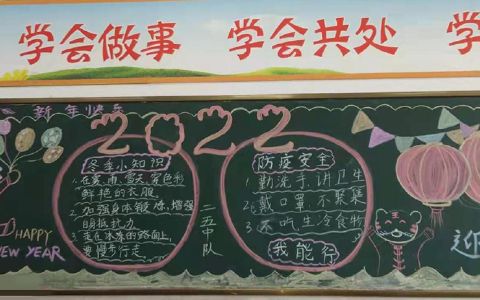 学会做事 学会共处 学
新年快乐
2022
HAPPY
NEW YEAR
冬季小知识
1.在雾、雨、雪天穿色彩
鲜艳的衣服
2.加强身体锻炼,增强
自抵抗力
走在冰冻的路面上,
要慢步行走
二五中队
防疫安全
1.勤洗手,讲卫生
2.戴口罩,不聚集
3.不吃生冷食物
我能行
迎